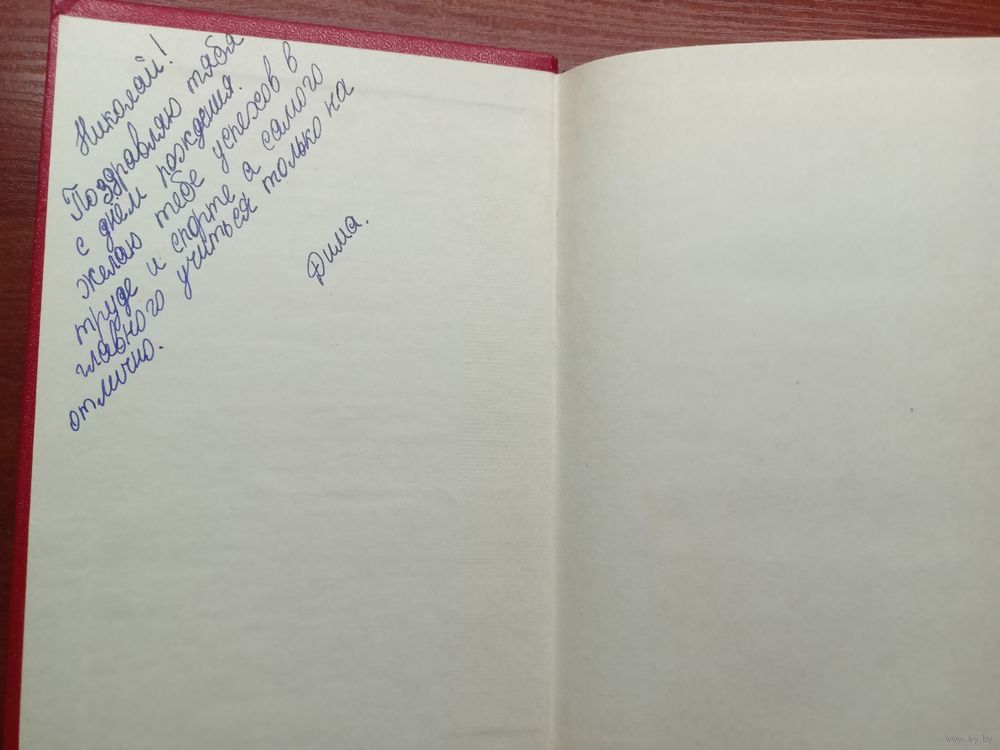 Николай!
Поздравляю тябя
с днём рождения.
желаю тебе успехов в
труде и спорте а самого
главного учиться только на
отлично.
Дима.
www.ay.by